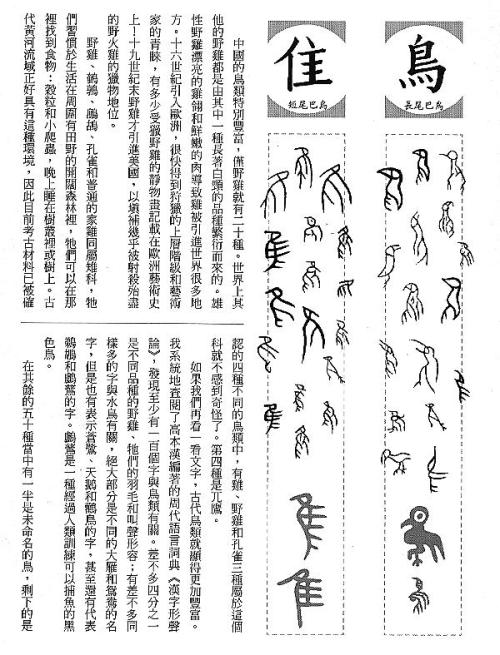 鳥
長尾巴鳥
隹
短尾巴鳥
中國的鳥類特別豐富，僅野雞就有二十種。世界上其
他的野雞都是由其中一種長著白頸的品種繁衍而來的。雄
性野雞漂亮的雞翎和鮮嫩的肉導致雞被引進世界很多地
方。十六世紀引入歐洲，很快得到狩獵的上層階級和藝術
家的青睞，有多少受獵野雞的靜物畫記載在歐洲藝術史
上！十九世紀末野雞才引進美國，以填補幾乎被射殺殆盡
的野火雞的獵物地位。
野雞、鵪鶉、鷓鴣、孔雀和普通的家雞同屬雉科，牠
們習慣於生活在周圍有田野的開闊森林裡，牠們可以在那
裡找到食物：穀粒和小爬蟲，晚上睡在樹叢裡或樹上。古
代黃河流域正好具有這種環境，因此目前考古材料已被確
認的四種不同的鳥類中，有雞、野雞和孔雀三種屬於這個
科就不感到奇怪了。第四種是兀鷹。
如果我們再看一看文字，古代鳥類就顯得更加豐富。
我系統地查閱了高本漢編著的周代語言詞典《漢字形聲
論》，發現至少有一百個字與鳥類有關。差不多四分之一
是不同品種的野雞、牠們的羽毛和叫聲形容；有差不多同
樣多的字與水鳥有關，絕大部分是不同的大雁和鴛鴦的名
字，但是也有表示蒼鷺、天鵝和鶴鳥的字，甚至還有代表
鵜鶘和鸕鶿的字。鸕鶿是一種經過人類訓練可以捕魚的黑
色鳥。
在其餘的五十種當中有一半是未命名的鳥，剩下的是